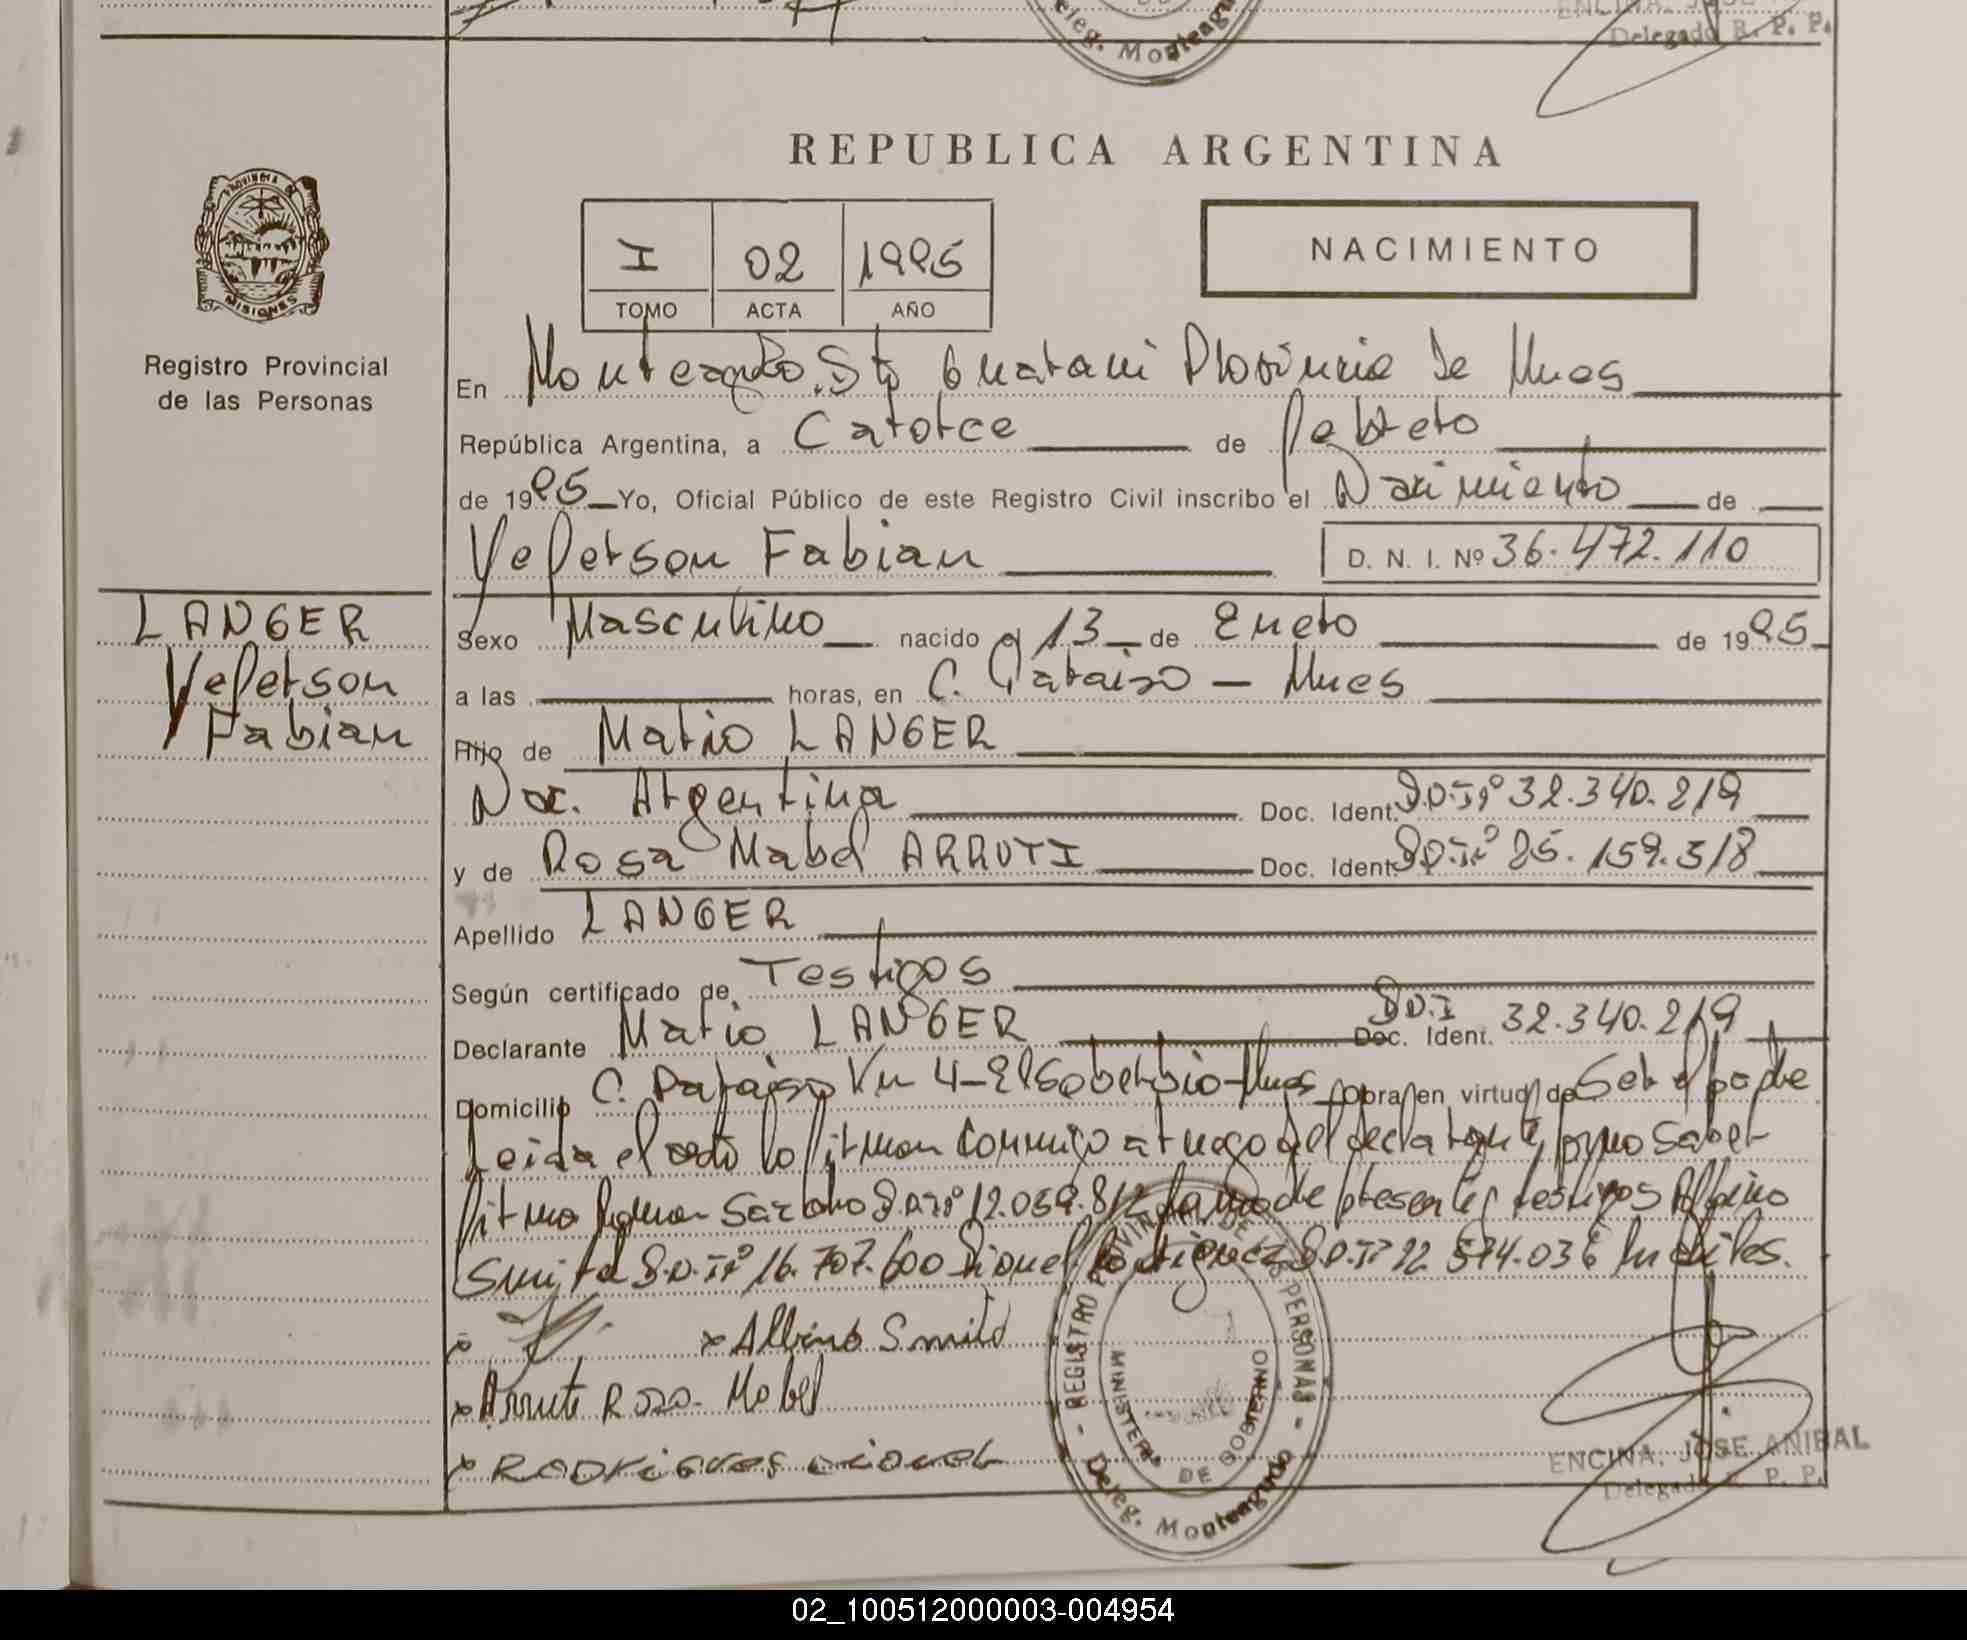 ENCINA, JOSE
Deleg. Monteagu
Delegado R. P. P.
REPUBLICA ARGENTINA
PROVINCIA DE
MISIONES
I 02 1995
TOMO ACTA AÑO
NACIMIENTO
Registro Provincial
de las Personas
En Monteagudo. Dto Guarani Provincia de Mnes
República Argentina, a Catorce de Febrero
de 1995 Yo, Oficial Público de este Registro Civil inscribo el Nacimiento de
Yeferson Fabian D. N. I. Nº 36.472.110
LANGER
Yeferson
Fabian
Sexo Masculino nacido el 13 de Enero de 1995
a las horas, en C. Paraiso - Mnes
Hijo de Mario LANGER
Nac. Argentina Doc. Ident. D.N.Iº 32.340.219
y de Rosa Mabel ARRUTI Doc. Ident. D.N.Iº 25.159.318
Apellido LANGER
Según certificado de Testigos
Declarante Mario LANGER Doc. Ident. D.N.I 32.340.219
Domicilio C. Paraiso Km 4-El Soberbio-Mnes Obra en virtud de Ser el padre
Leida el acta lo firman conmigo a ruego del declarante por no saber
firmar Ramon D.N.Iº 12.059.812 la madre presente, testigos Albino
Smith D.N.Iº 16.707.600 Lionel Rodriguez D.N.Iº 12.574.036 habiles.
x x Albino Smith
x Arrute Rosa Mabel
x RODRIGUES Lionel
REGISTRO PROVINCIAL DE LAS PERSONAS
MINISTERIO DE GOBIERNO
Deleg. Monteagudo
ENCINA, JOSE ANIBAL
Delegado R. P. P.
02_100512000003-004954